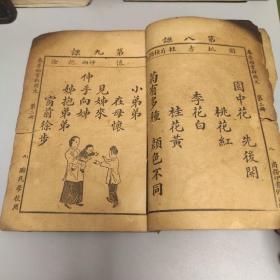 第八課
園中花 先後開
桃花紅
李花白
桂花黃
菊有多種 顏色不同
第九課
小弟弟
在母懷
見姊來
伸手向姊
姊抱弟弟
窗前徐步
八 國民學校用